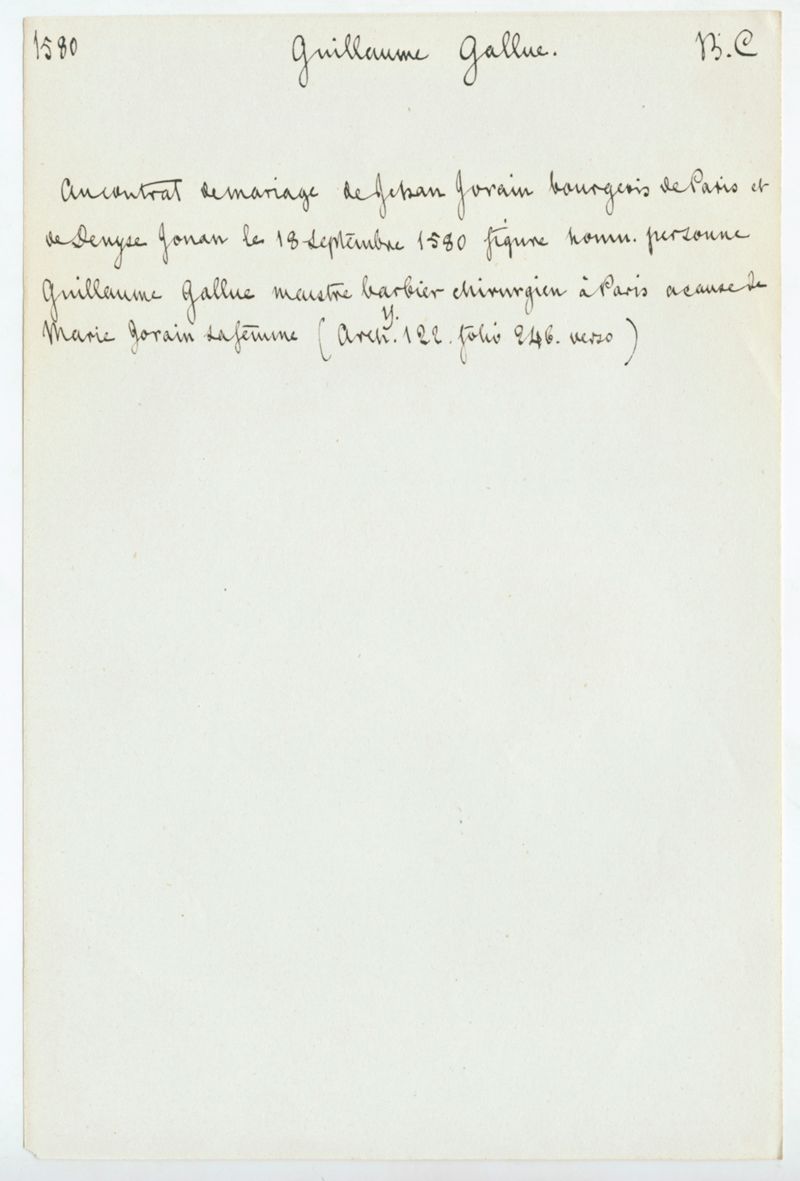 1580 Guillaume Gallue. B.C
Au contrat de mariage de Jehan Jorain bourgeois de Paris et
de Denyse Jouan le 18 septembre 1580 figure homn. personne
Guillaume Gallue maistre barbier chirurgien à Paris a cause de
Marie Jorain sa femme (Arch. Y. 122. folio 246. verso)